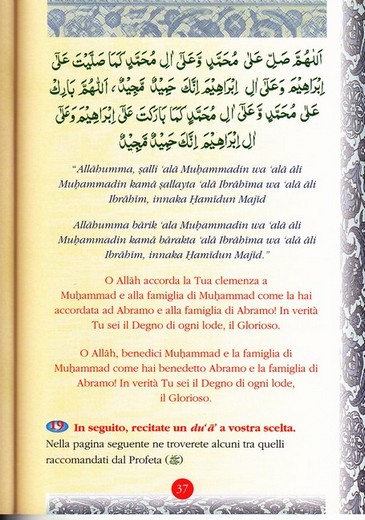 اَللّٰهُمَّ صَلِّ عَلٰى مُحَمَّدٍ وَّعَلٰٓى اٰلِ مُحَمَّدٍ كَمَا صَلَّيْتَ عَلٰٓى
اِبْرَاهِيْمَ وَعَلٰٓى اٰلِ اِبْرَاهِيْمَ اِنَّكَ حَمِيْدٌ مَّجِيْدٌ، اَللّٰهُمَّ بَارِكْ
عَلٰى مُحَمَّدٍ وَّعَلٰٓى اٰلِ مُحَمَّدٍ كَمَا بَارَكْتَ عَلٰٓى اِبْرَاهِيْمَ وَعَلٰٓى
اٰلِ اِبْرَاهِيْمَ اِنَّكَ حَمِيْدٌ مَّجِيْدٌ
“Allāhumma, ṣalli ‘alā Muḥammadin wa ‘alā āli
Muḥammadin kamā ṣallayta ‘alā Ibrāhīma wa ‘alā āli
Ibrāhīm, innaka Ḥamīdun Majīd
Allāhumma bārik ‘ala Muḥammadin wa ‘alā āli
Muḥammadin kamā bārakta ‘alā Ibrāhīma wa ‘alā āli
Ibrāhīm, innaka Ḥamīdun Majīd.”
O Allāh accorda la Tua clemenza a
Muḥammad e alla famiglia di Muḥammad come la hai
accordata ad Abramo e alla famiglia di Abramo! In verità
Tu sei il Degno di ogni lode, il Glorioso.
O Allāh, benedici Muḥammad e la famiglia di
Muḥammad come hai benedetto Abramo e la famiglia di
Abramo! In verità Tu sei il Degno di ogni lode,
il Glorioso.
19 In seguito, recitate un du‘ā’ a vostra scelta.
Nella pagina seguente ne troverete alcuni tra quelli
raccomandati dal Profeta (ﷺ)
37